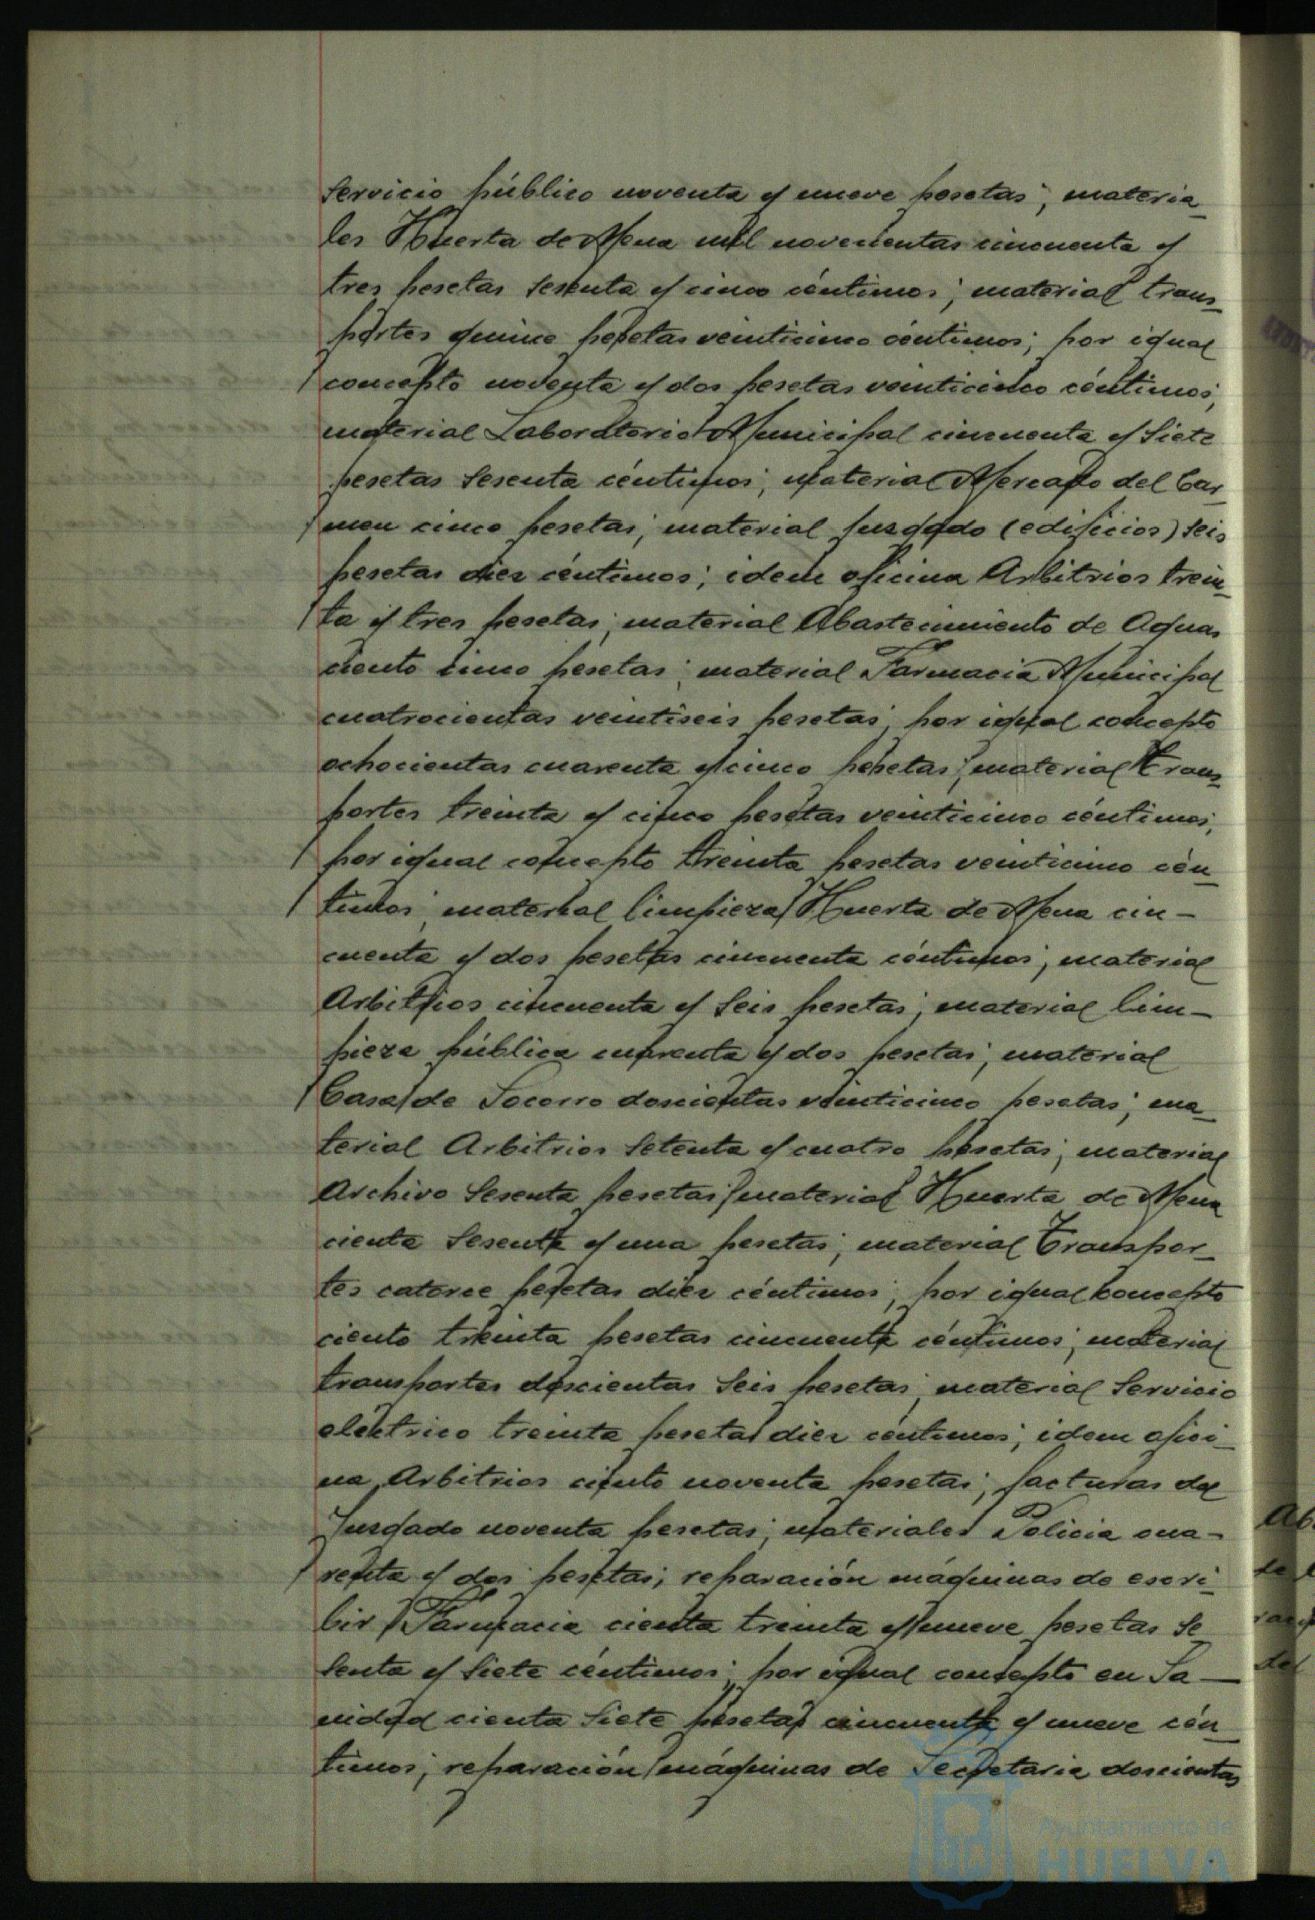 servicio público noventa y nueve pesetas; materia-
les Huerta de Mena mil novecientas cincuenta y
tres pesetas sesenta y cinco céntimos; material trans-
portes quince pesetas veinticinco céntimos; por igual
concepto noventa y dos pesetas veinticinco céntimos;
material Laboratorio Municipal cincuenta y siete
pesetas sesenta céntimos; material Mercado del Car-
men cinco pesetas; material juzgado (edificios) seis
pesetas diez céntimos; idem oficina Arbitrios trein-
ta y tres pesetas; material Abastecimiento de Aguas
ciento cinco pesetas; material Farmacia Municipal
cuatrocientas veintiseis pesetas; por igual concepto
ochocientas cuarenta y cinco pesetas; material trans-
portes treinta y cinco pesetas veinticinco céntimos;
por igual concepto treinta pesetas veinticinco cén-
timos; material limpieza Huerta de Mena cin-
cuenta y dos pesetas cincuenta céntimos; material
Arbitrios cincuenta y seis pesetas; material lim-
pieza pública cuarenta y dos pesetas; material
Casa de Socorro doscientas veinticinco pesetas; ma-
terial Arbitrios setenta y cuatro pesetas; material
Archivo sesenta pesetas; material Huerta de Mena
cienta sesenta y una pesetas; material Transpor-
tes catorce pesetas diez céntimos; por igual concepto
ciento treinta pesetas cincuenta céntimos; material
transportes doscientas seis pesetas; material servicio
eléctrico treinta pesetas diez céntimos; idem ofici-
na Arbitrios ciento noventa pesetas; facturas del
Juzgado noventa pesetas; materiales Policia cua-
renta y dos pesetas; reparación máquinas de escri-
bir Farmacia cienta treinta y nueve pesetas se
senta y siete céntimos; por igual concepto en Sa-
nidad cienta siete pesetas cincuenta y nueve cén-
timos; reparación máquinas de Secretaria doscientas
Ayuntamiento de
HUELVA